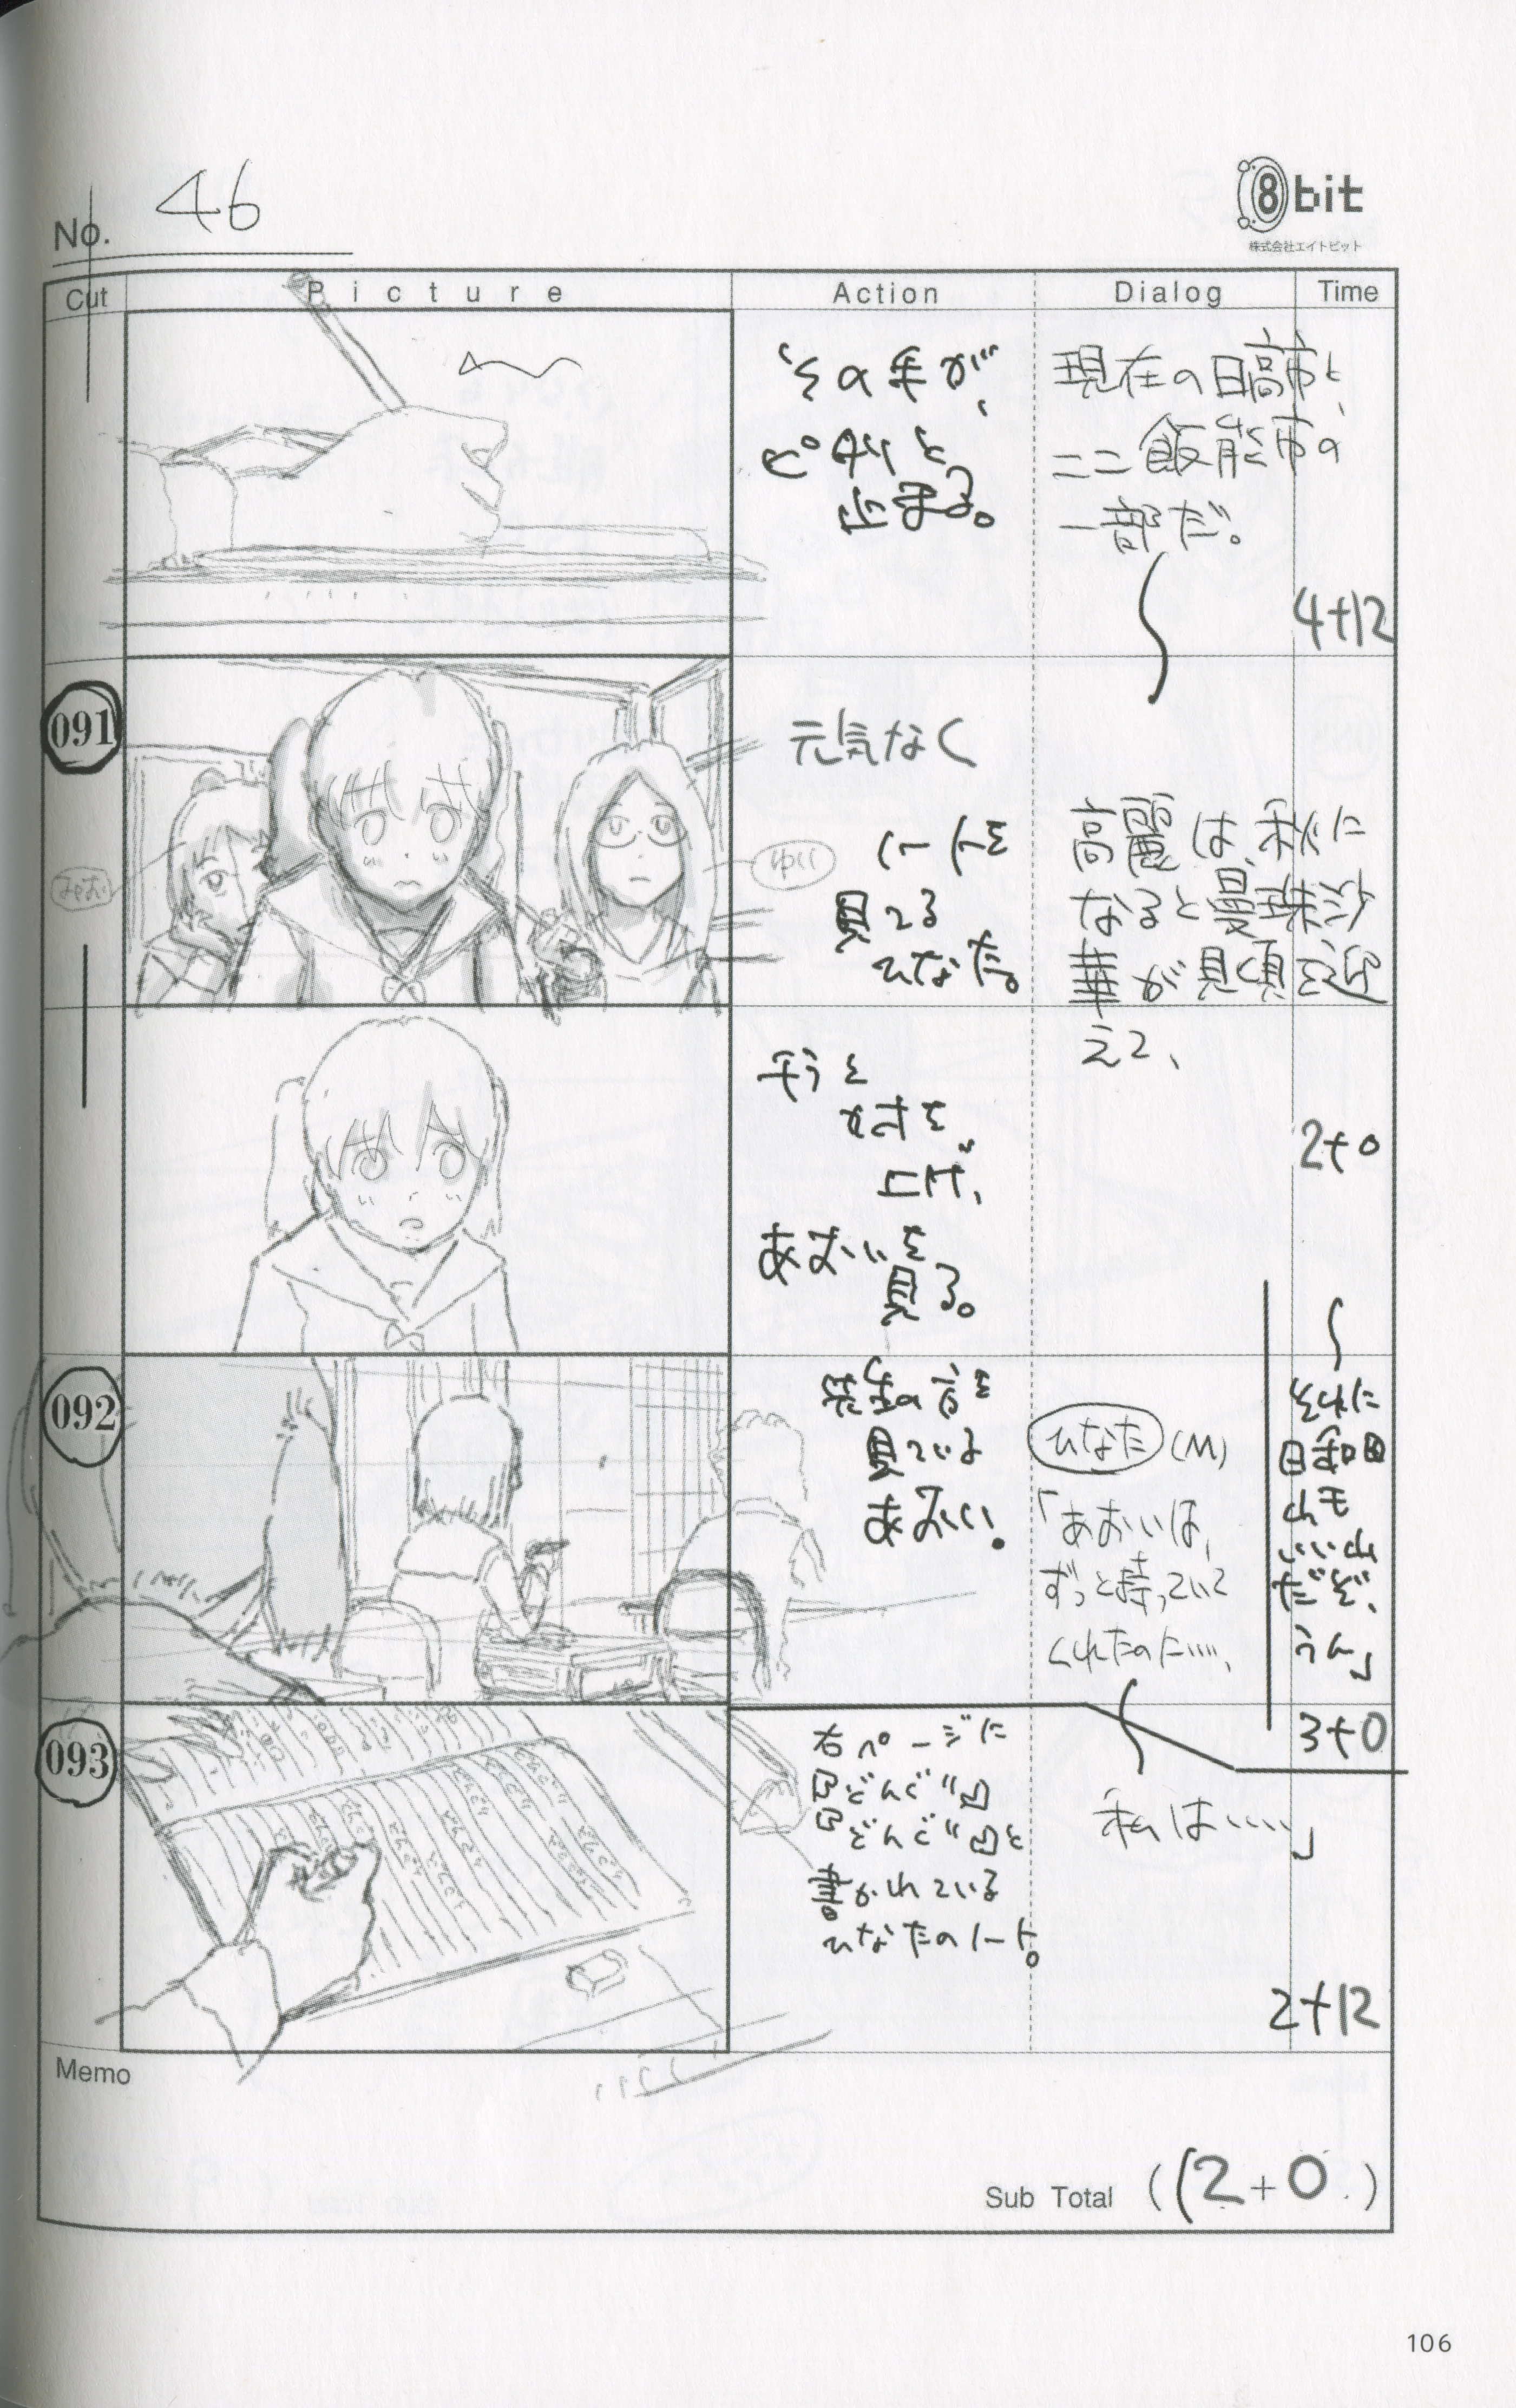 No. 46
8bit
株式会社エイトビット
Cut
Picture
Action
Dialog
Time
その手が、
ピタリと
止まる。
現在の日高市と、
ここ飯能市の
一部だ。
4+12
091
みお
ゆり
元気なく
ノートを
見てる
ひなた。
高麗は、秋に
なると曼珠沙
華が見頃を迎
えて、
チラと
かおを
上げ、
あおいを
見る。
2+0
092
先生の方を
見ている
あおい。
ひなた (M)
「あおいは、
ずっと待っていて
くれたのに…、
それに
日和田
山も
いい山
だぞ、
うん」
3+0
093
右ページに
どんど
どんど と
書かれている
ひなたのノート。
私は…」
2+12
Memo
Sub Total ((2+0.)
106